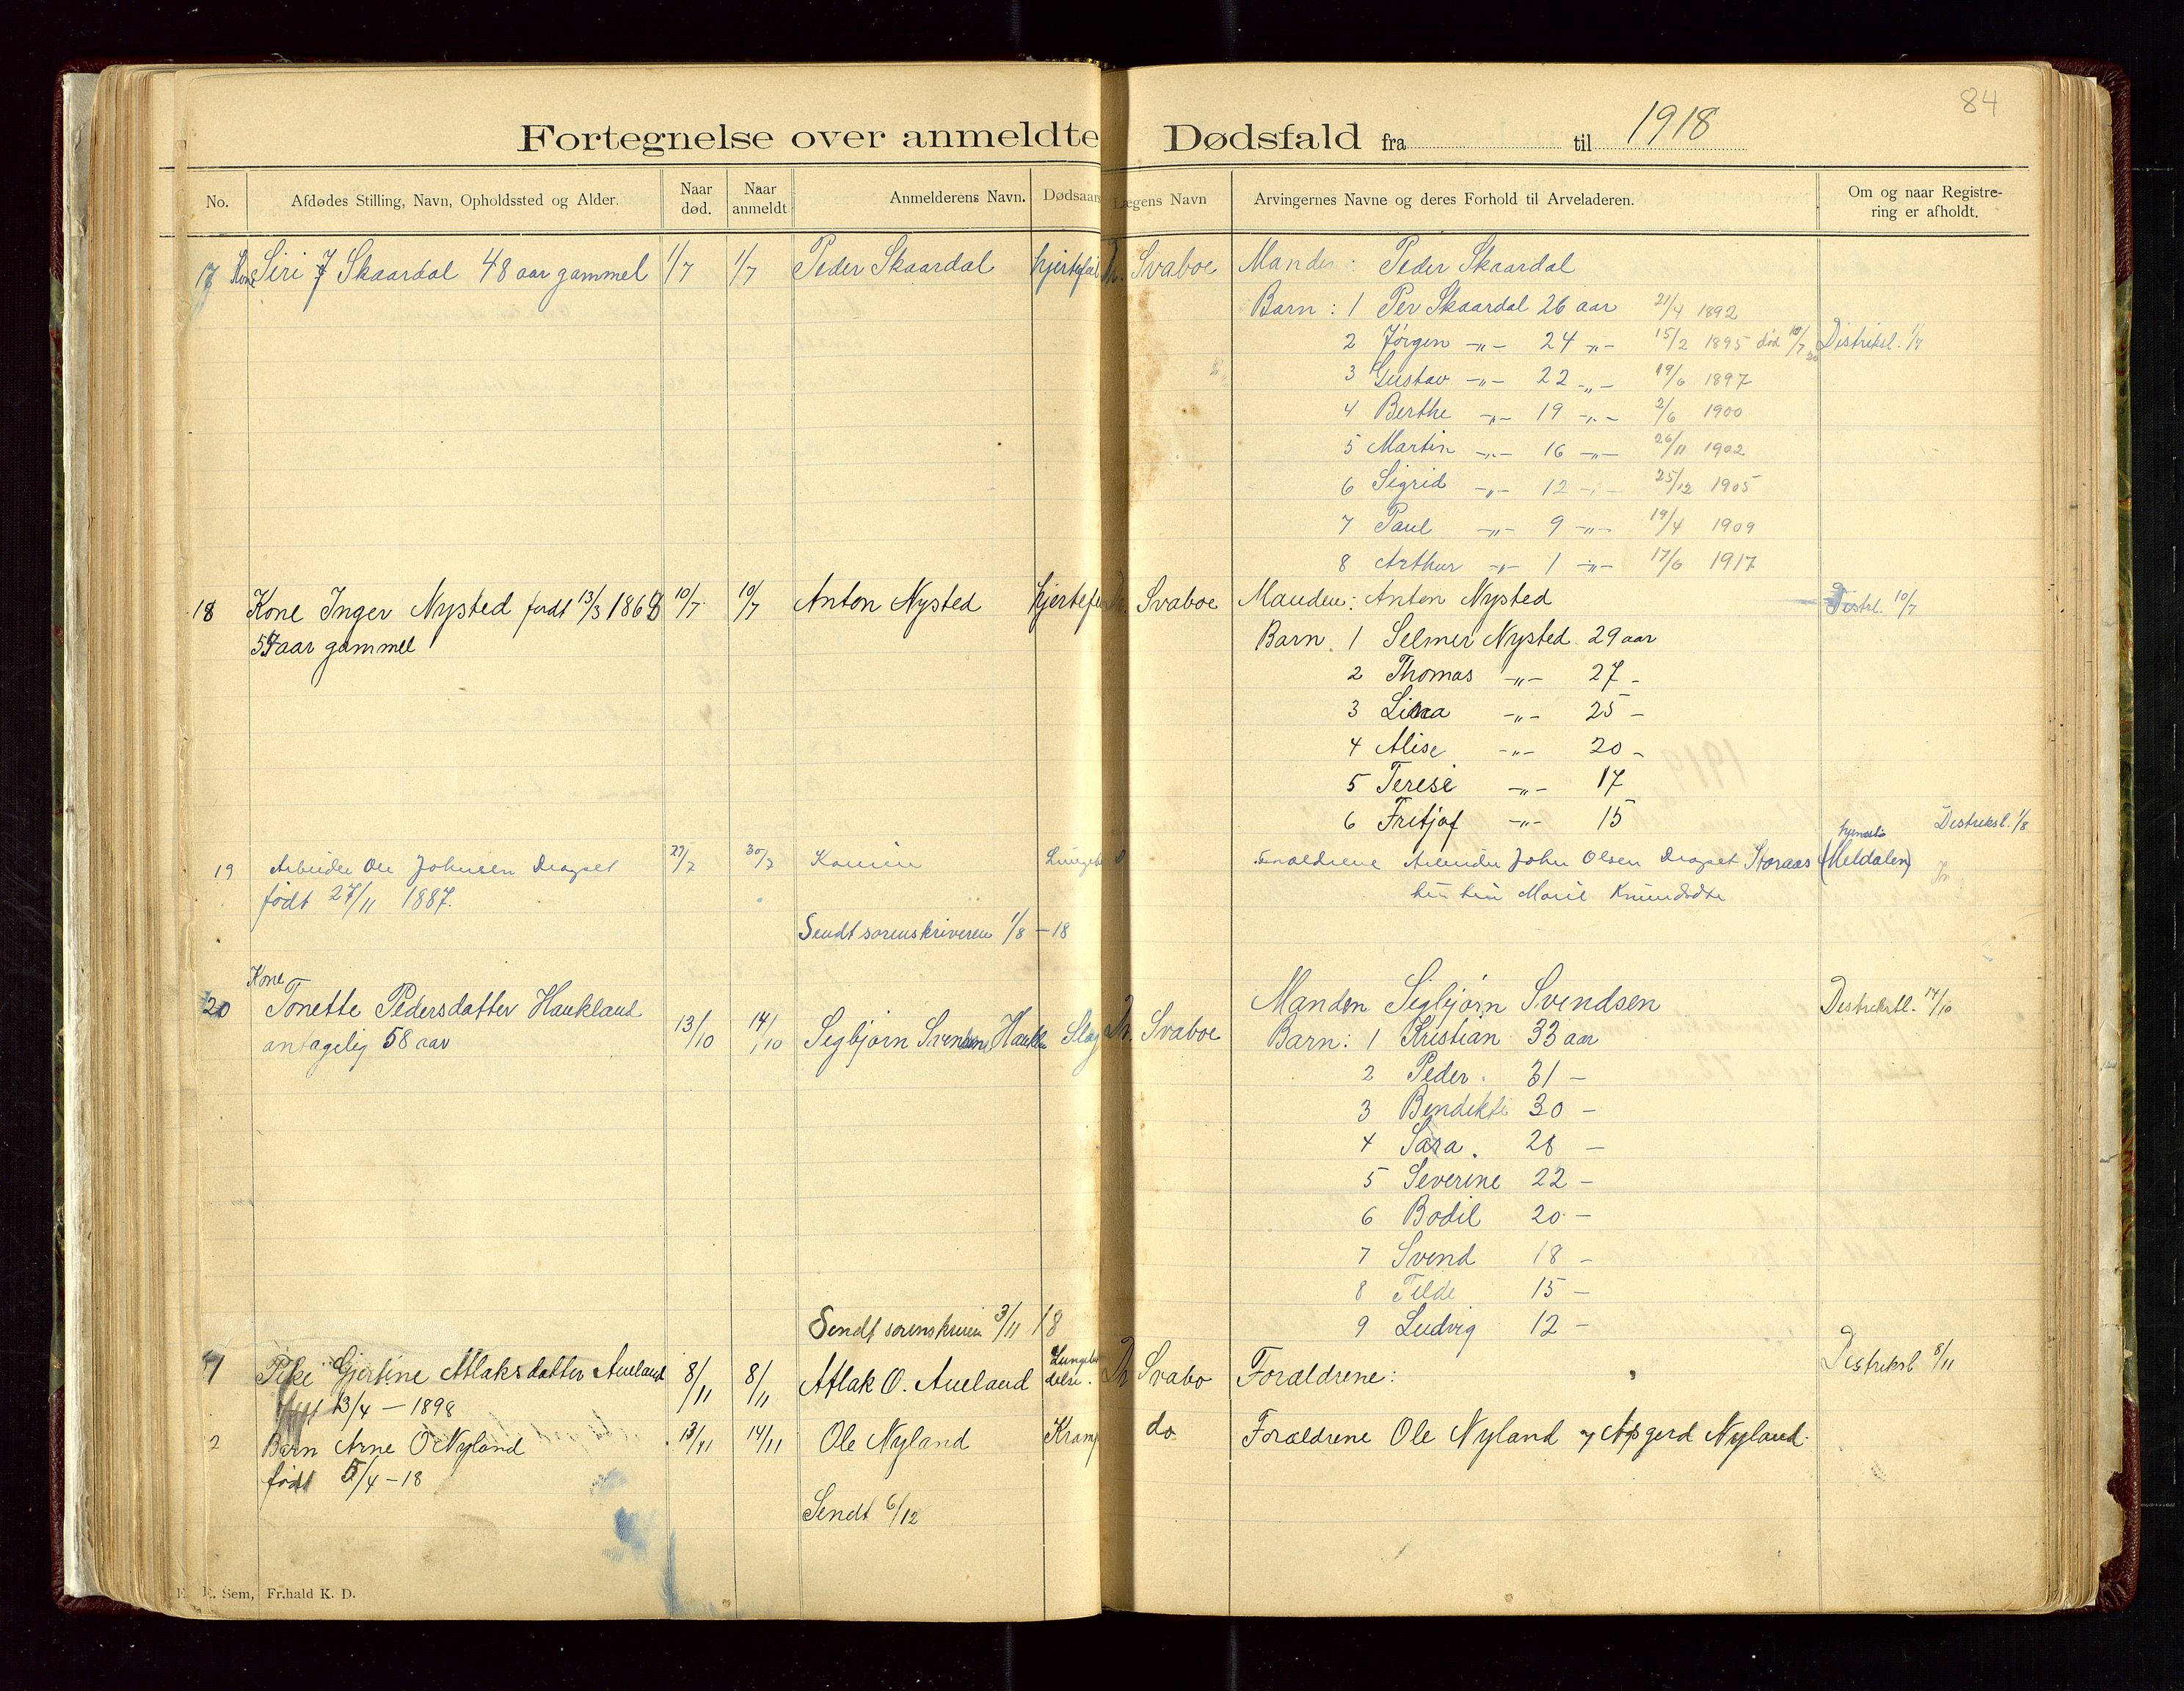 84
Fortegnelse over anmeldte Dødsfald fra til 1918
No. Afdødes Stilling, Navn, Opholdssted og Alder. Naar død. Naar anmeldt Anmelderens Navn. Dødsaar Lægens Navn Arvingernes Navne og deres Forhold til Arveladeren. Om og naar Registrering er afholdt.
17 Kone Siri J Skaardal 48 aar gammel 1/7 1/7 Peder Skaardal hjertefeil Dr. Svaboe Manden: Peder Skaardal
Barn: 1 Per Skaardal 26 aar 21/4 1892
2 Jørgen -"- 24 -"- 15/2 1895 død 10/7 20 Distriksl. 1/7
3 Gustav -"- 22 -"- 19/6 1897
4 Berthe -"- 19 -"- 2/6 1900
5 Martin -"- 16 -"- 26/11 1902
6 Sigrid -"- 12 -"- 25/12 1905
7 Paul -"- 9 -"- 19/4 1909
8 Arthur -"- 1 -"- 17/6 1917
18 Kone Inger Nysted født 13/3 1868 10/7 10/7 Anton Nysted hjertefe Dr. Svaboe Manden: Anton Nysted Distrl. 10/7
aar gammel Barn. 1 Selmer Nysted 29 aar
2 Thomas -"- 27 -
3 -"- 25 -
4 Alise -"- 20 -
5 Terese -"- 17
6 Fritjof -"- 15
Distriksl. 1/8
19 Arbeider Ole Johnsen Dragset 27/7 30/7 Konen Lungebe Forældrene Arbeider John Olsen Dragset Storaas (Meldalen)
født 27/11 1887. Marie
Sendt sorenskriveren 1/8 - 18
Kone
20 Tonette Pedersdatter Haukland 13/10 14/10 Sigbjørn Svendsen Haukla Slag Dr. Svaboe Manden Sigbjørn Svendsen Distrikstl. 14/10
antagelig 58 aar Barn: 1 Kristian 33 aar
2 Peder. 31 -
3 Bendikte 30 -
4 Sara. 28 -
5 Severine 22 -
6 Bodil 20 -
7 Svend 18 -
8 Tilde 15 -
9 Ludvig 12 -
Sendt sorenskriven 3/11 18
1 Pike Gjertine Atlaksdatter Aueland 8/11 8/11 Atlak O. Aueland Lungebe delse. Dr Svabo Forældrene: Distriksl 8/11
født 13/4 - 1898
2 Barn Arne O Nyland 13/11 14/11 Ole Nyland Kramp do Forældrene Ole Nyland og Asgerd Nyland.
født 5/4 - 18
Sendt 6/12
E. Sem, Fr.hald K. D.